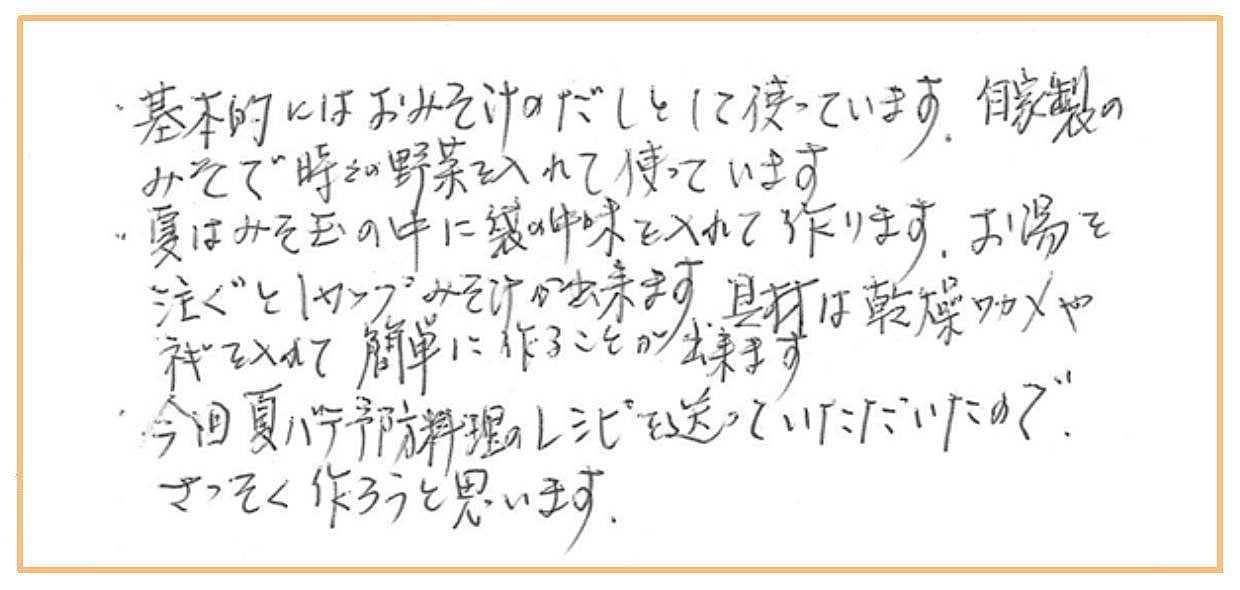 ・基本的にはおみそ汁のだしとして使っています。自家製の
みそで時々の野菜を入れて使っています
・夏はみそ玉の中に袋の中味を入れて作ります。お湯を
注ぐと1カップみそ汁が出来ます 具材は乾燥ワカメや
ネギを入れて簡単に作ることが出来ます
・今回夏バテ予防料理のレシピを送っていただいたので、
さっそく作ろうと思います。